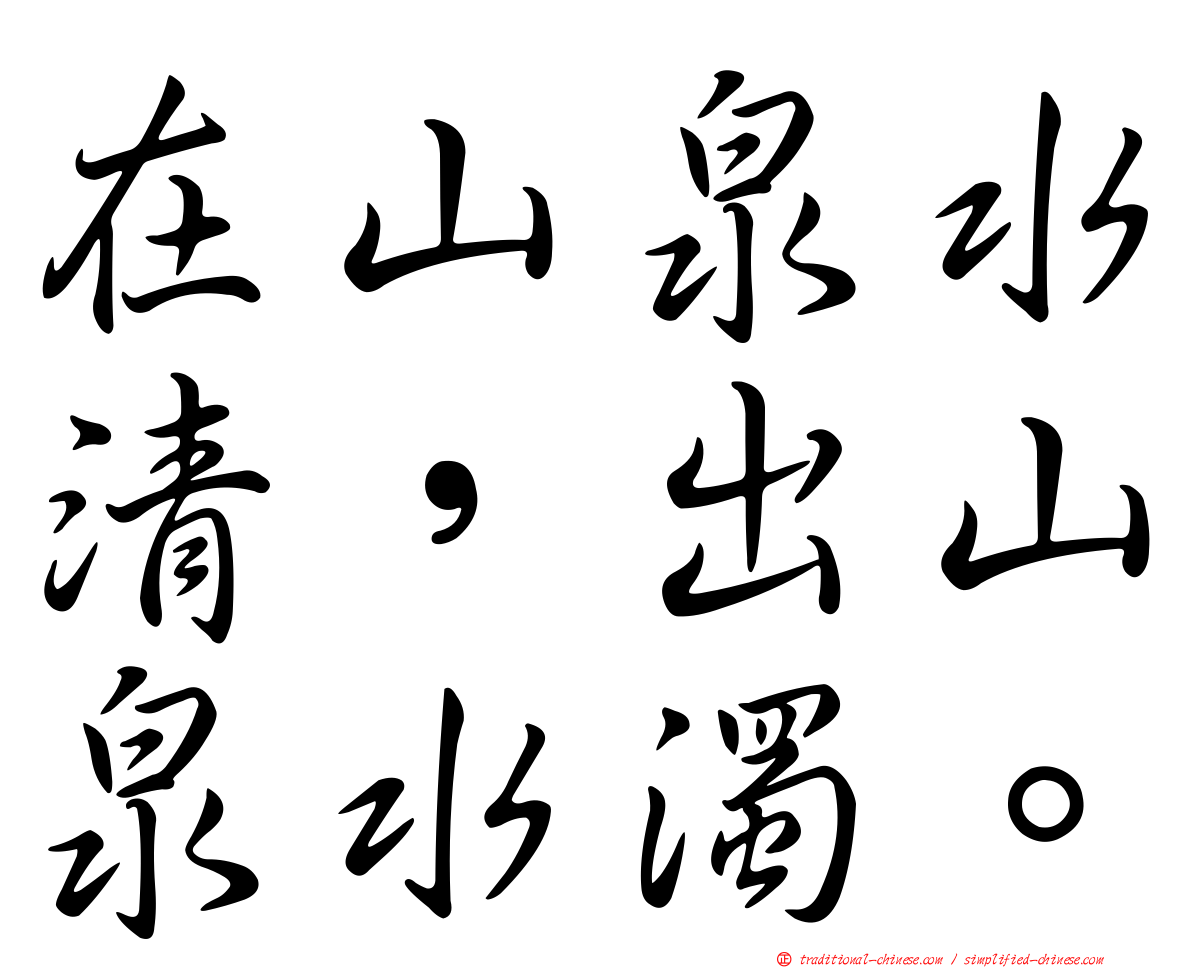 在山泉水
清，出山
泉水濁。
㊣ traditional-chinese.com / simplified-chinese.com